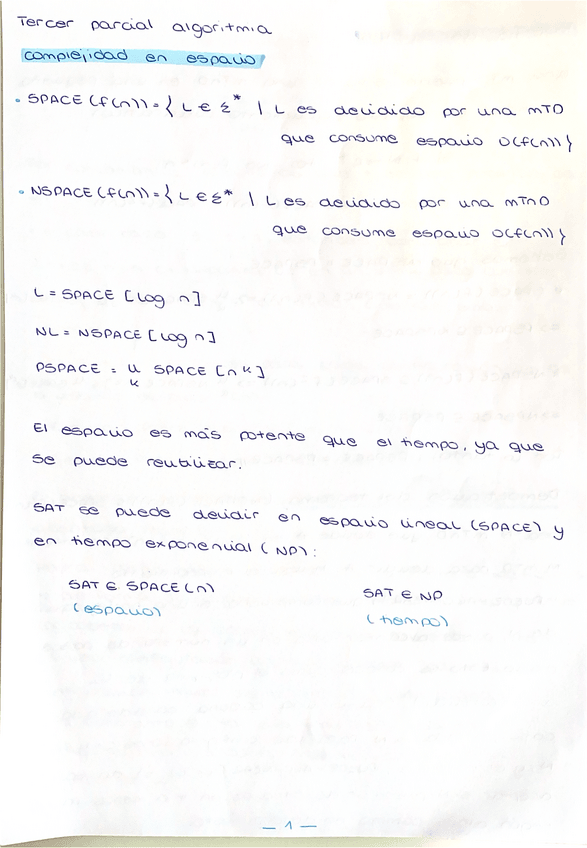 Tercer parcial algoritmia
complejidad en espacio
• SPACE (f(n)) = { L ∈ Σ* | L es decidido por una MTD
que consume espacio O(f(n)) }
• NSPACE (f(n)) = { L ∈ Σ* | L es decidido por una MTND
que consume espacio O(f(n)) }
L = SPACE [log n]
NL = NSPACE [log n]
PSPACE = U SPACE [n k]
k
El espacio es más potente que el tiempo, ya que
se puede reutilizar.
SAT se puede decidir en espacio lineal (SPACE) y
en tiempo exponencial (NP):
SAT ∈ SPACE (n) SAT ∈ NP
(espacio) (tiempo)
— 1 —